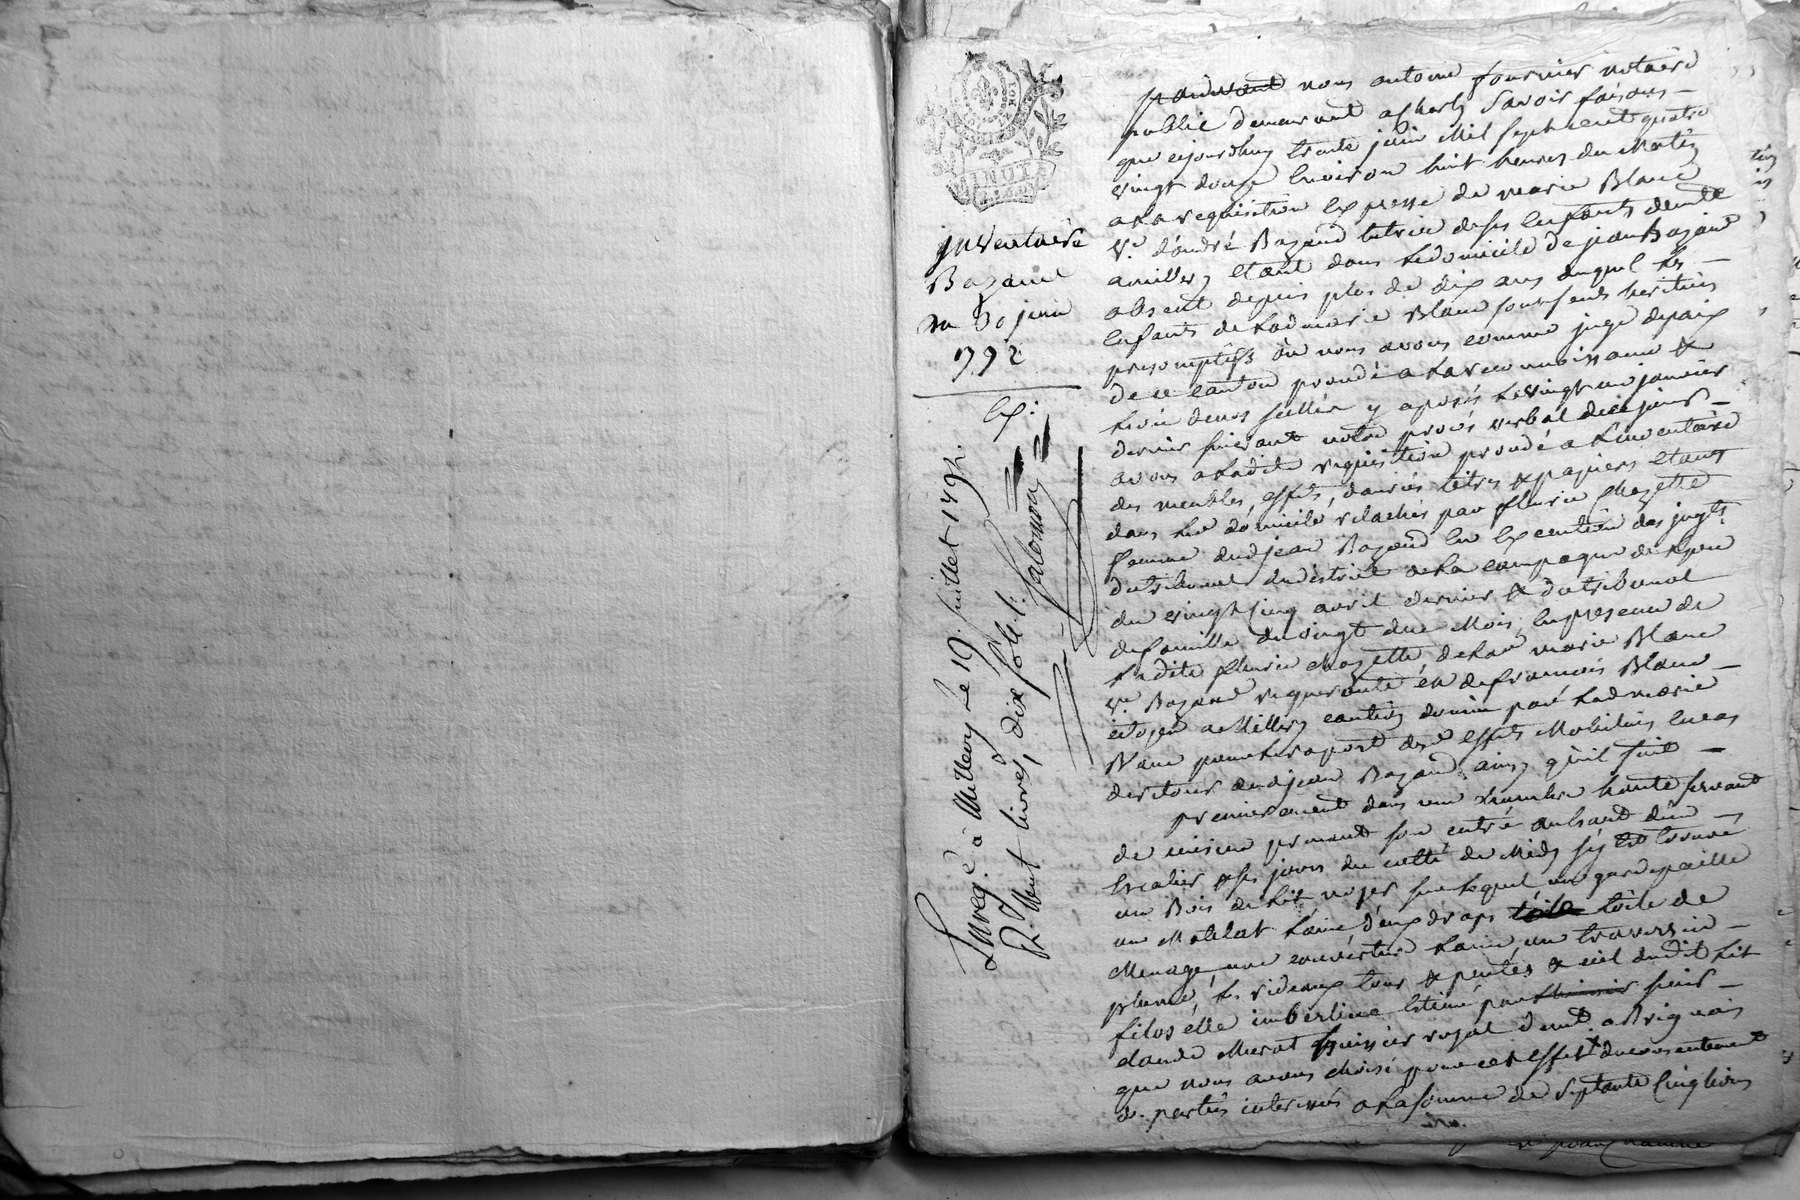 MINUT
inventaire
Bazand
du 30 juin
1792
Ex:
Enregé à Millery le 19 juillet 1792.
R. Vint livres, dix sols.
Salomon
pardevant nous antoine fournier notaire
public demeurant a Charly Savoir faisons
que ejourdhuy trente juin Mil sept cent quatre
vingt douze Environ huit heures du Matin
a la requisition Expresse de marie Blanc
Ve. d'andré Bazand tutrice de ses Enfants demte
a millery, etant dans le domicile de jean Bazand
absent depuis plus de dix ans duquel les
Enfants de lad marie Blanc sont seuls heritiers
presomptifs ou nous avons comme juge de paix
de ce canton procedé a la reconnoissance &
levée de nos scellés y aposés le vingt un janvier
dernier suivant notre procès verbal dece jour
avons a ladite requisition procedé a L'inventaire
des meubles, effets, danrées titres & papiers etant
dans le domicile relachés par fleurie Chazette
femme dud jean Bazand en Execution des jugts
du tribunal du district de la campagne de Lyon
du vingt cinq avril dernier & du tribunal
de famille du vingt du Mois, en presence de
ladite fleurie Chazette, de lad marie Blanc
Ve. Bazand requerante et de francois Blanc
citoyen de Millery caution donnée par lad marie
Blanc pour le raport des effets Mobiliers en cas
de retour dud jean Bazand, ainsy qu'il suit
premierement dans une chambre haute servant
de cuisine prenant son entrée au haut d'un
Escalier & ses jours du cotté de Midy s'y est trouvé
un Bois de Lit noyer sur lequel une gardepaille
un Matelat Laine, deux draps toile toile de
Menage, une couverture Laine, un traversin
plume, les rideaux tour & pentes & ciel dudit Lit
filoselle imberline Estimé par sieur
claude Murat huissier royal demt a Brignais
que nous avons choisi pour cet effet du consentement
de parties interessées a la somme de Septante Cinq livres